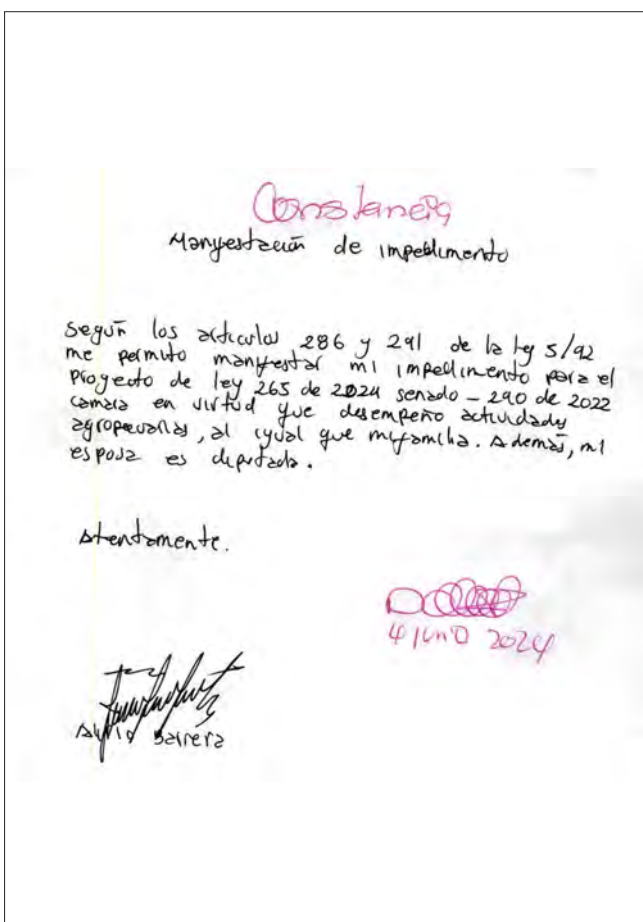 Constancia
Manifestación de impedimento
Según los artículos 286 y 291 de la ley 5/92
me permito manifestar mi impedimento para el
Proyecto de ley 265 de 2024 senado – 290 de 2022
camara en virtud que desempeño actividades
agropecuarias, al igual que mi familia. Además, mi
esposa es diputada.
Atentamente.
4 junio 2024
Barrera